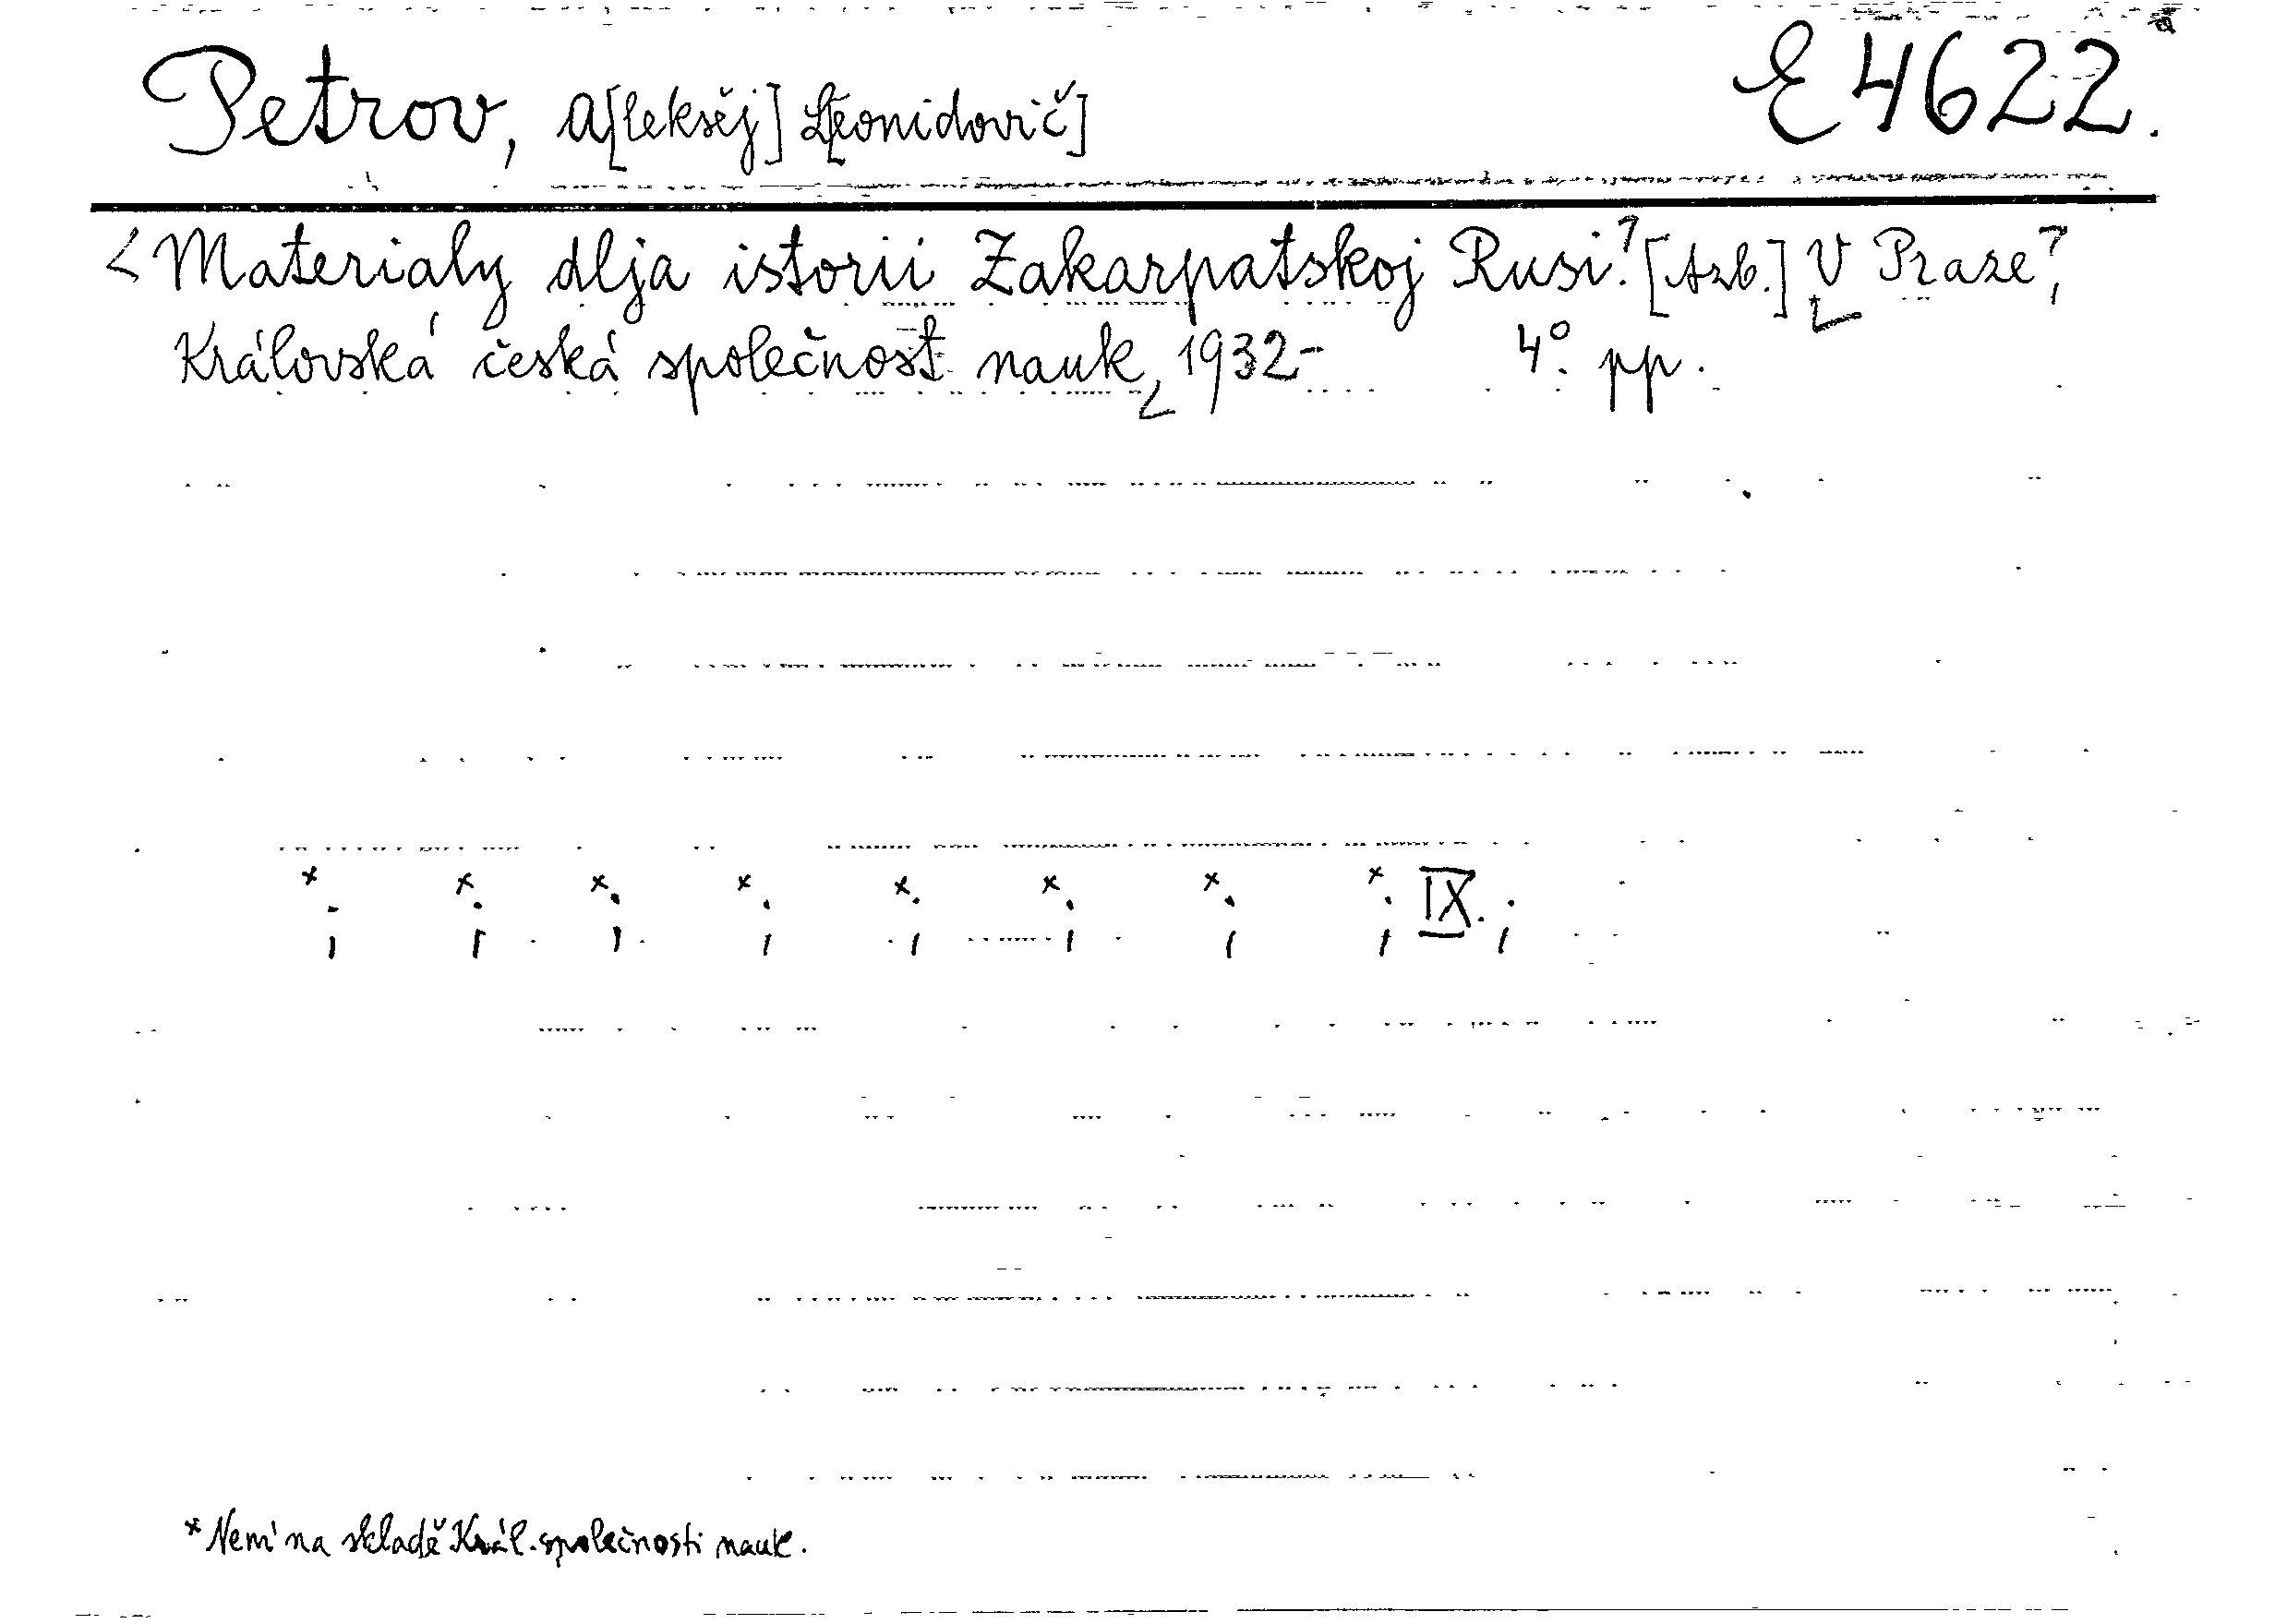 Petrov, A[leksěj] L[eonidovič] E 4622.
<Materialy dlja istorii Zakarpatskoj Rusi.? [Azb.] V Praze?,
Královská česká společnost nauk, 1932- 4°. pp.
* * * * * * * * IX.;
*Není na skladě Král. společnosti nauk.